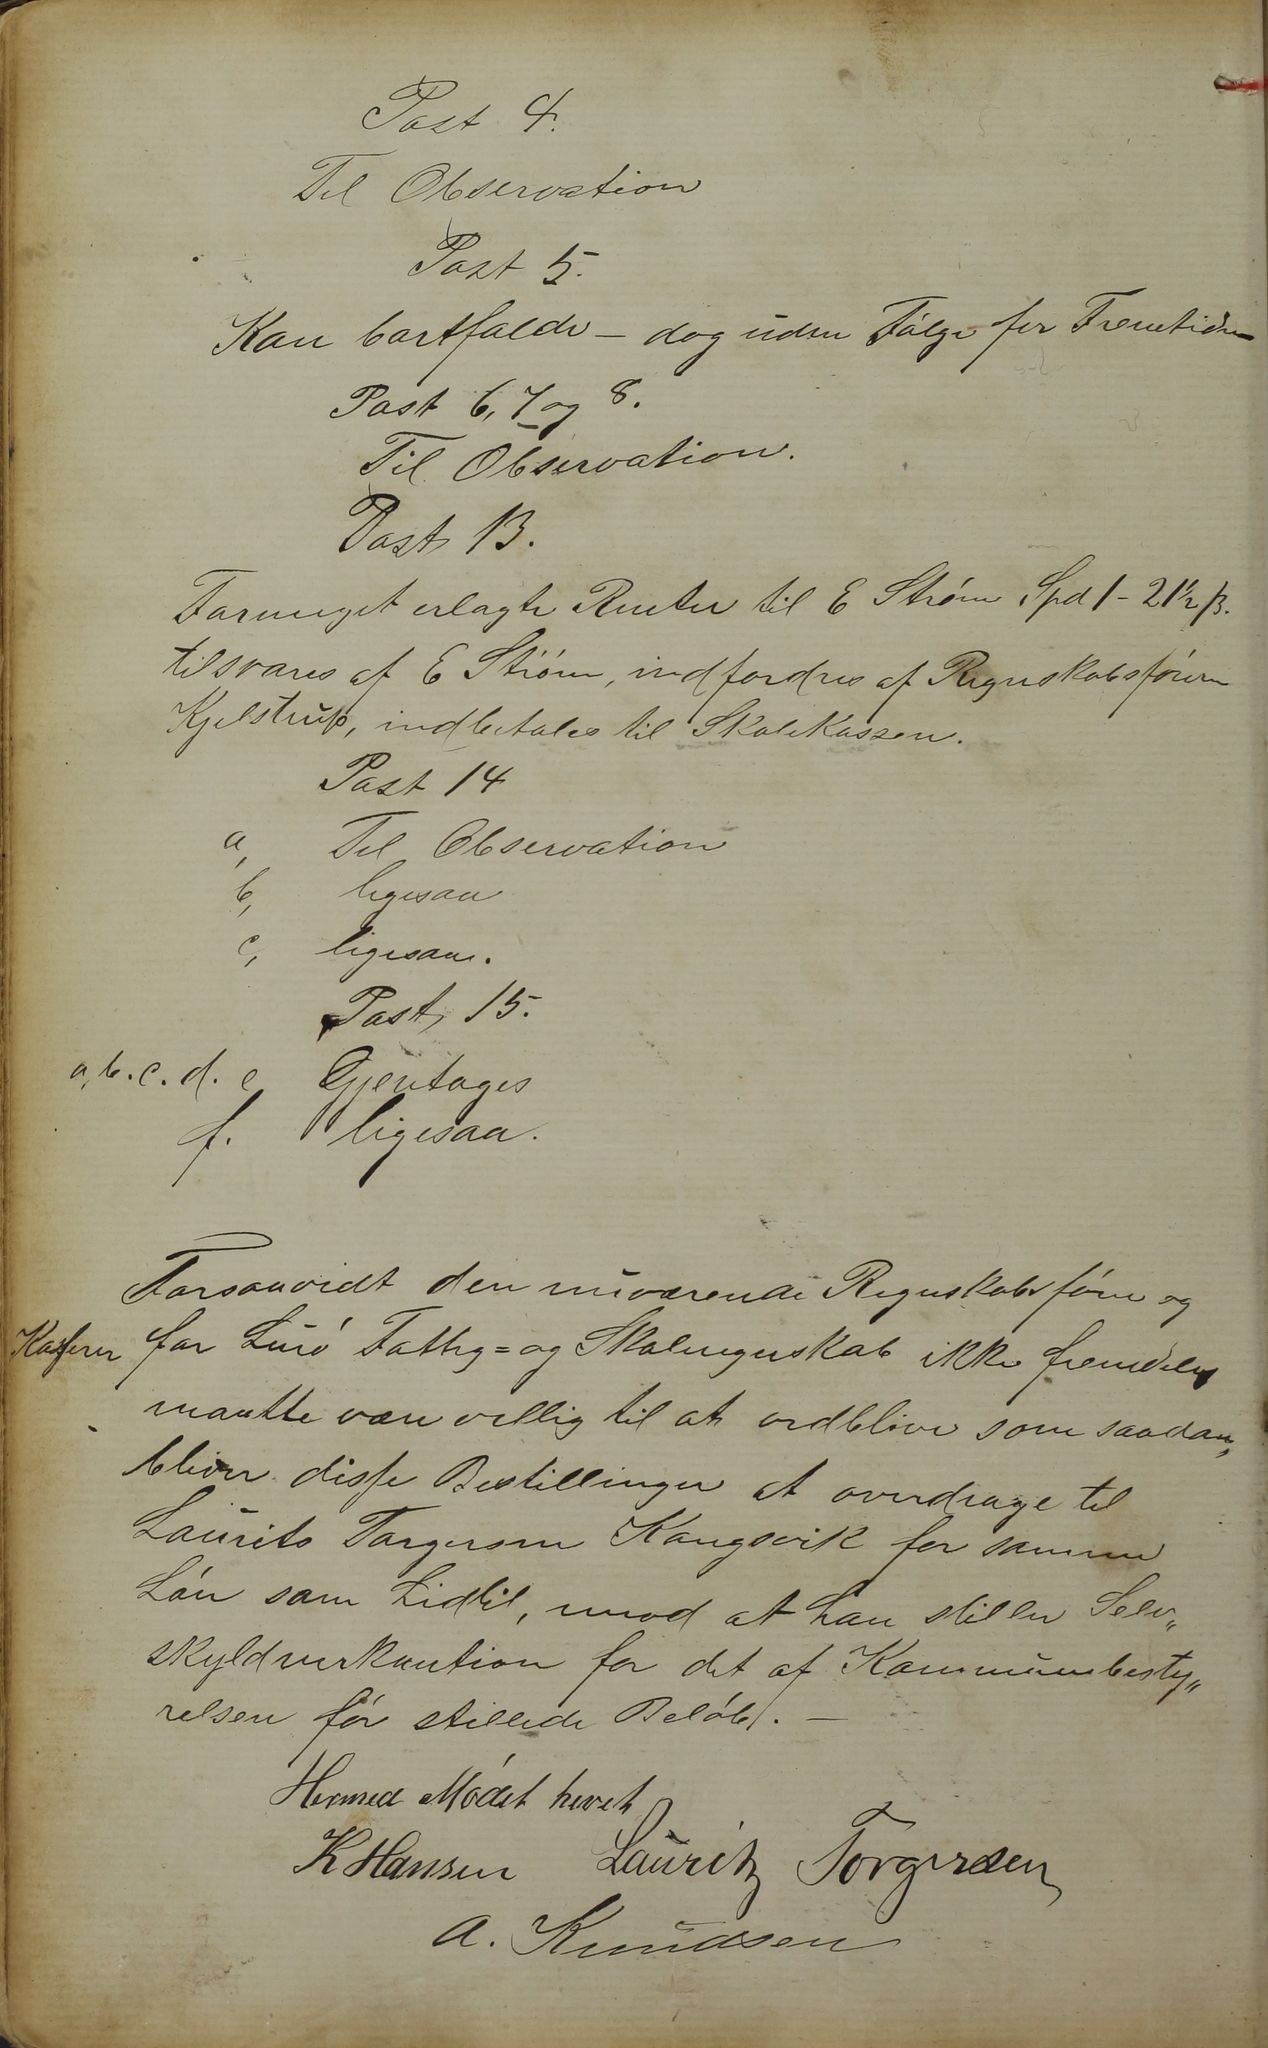 Post 4.
Til Observation
Post 5.
Kan bortfalde – dog uden Følge for Fremtiden
Post 6, 7 og 8.
Til Observation.
Post 13.
Formeget erlagte Renter til E Strøm Spd 1 - 21½ β.
tilsvares af E Strøm, indfordres af Regnskabsføreren
Kjelstrup, indbetales til Skolekassen.
Post 14
a, Til Observation
b, ligesaa
c, ligesaa.
Post, 15.
a, b. c. d. e Gjentages
f. ligesaa.
Forsaavidt den nuværende Regnskabsfører og
Kasserer for Lurø Fattig= og Skoleregnskab ikke fremdeles
maatte være villig til at vedblive som saadan,
bliver disse Bestillinger at overdrage til
Laurits Torgersen Kongsvik for samme
Løn som hidtil, mod at han stiller Selv„
skyldnerkaution for det af Kommunebesty„
relsen før stillede Beløb. –
Hermed Mødet hevet
K Hansen Lauritz Torgersen
A. Knudsen